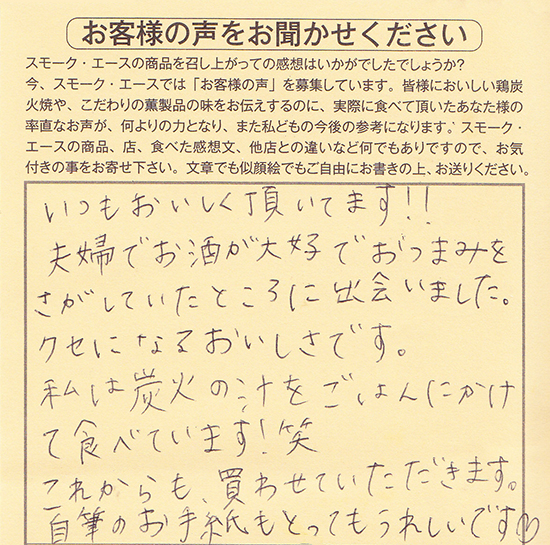 お客様の声をお聞かせください
スモーク・エースの商品を召し上がっての感想はいかがでしたでしょうか?
今、スモーク・エースでは「お客様の声」を募集しています。皆様においしい鶏炭
火焼や、こだわりの薫製品の味をお伝えするのに、実際に食べて頂いたあなた様の
率直なお声が、何よりの力となり、また私どもの今後の参考になります。スモーク・
エースの商品、店、食べた感想文、他店との違いなど何でもありですので、お気
付きの事をお寄せ下さい。文章でも似顔絵でもご自由にお書きの上、お送りください。
いつもおいしく頂いてます!!
夫婦でお酒が大好でおつまみを
さがしていたところに出会いました。
クセになるおいしさです。
私は炭火の汁をごはんにかけ
て食べています!笑
これからも、買わせていただきます。
自筆のお手紙もとってもうれしいです♡